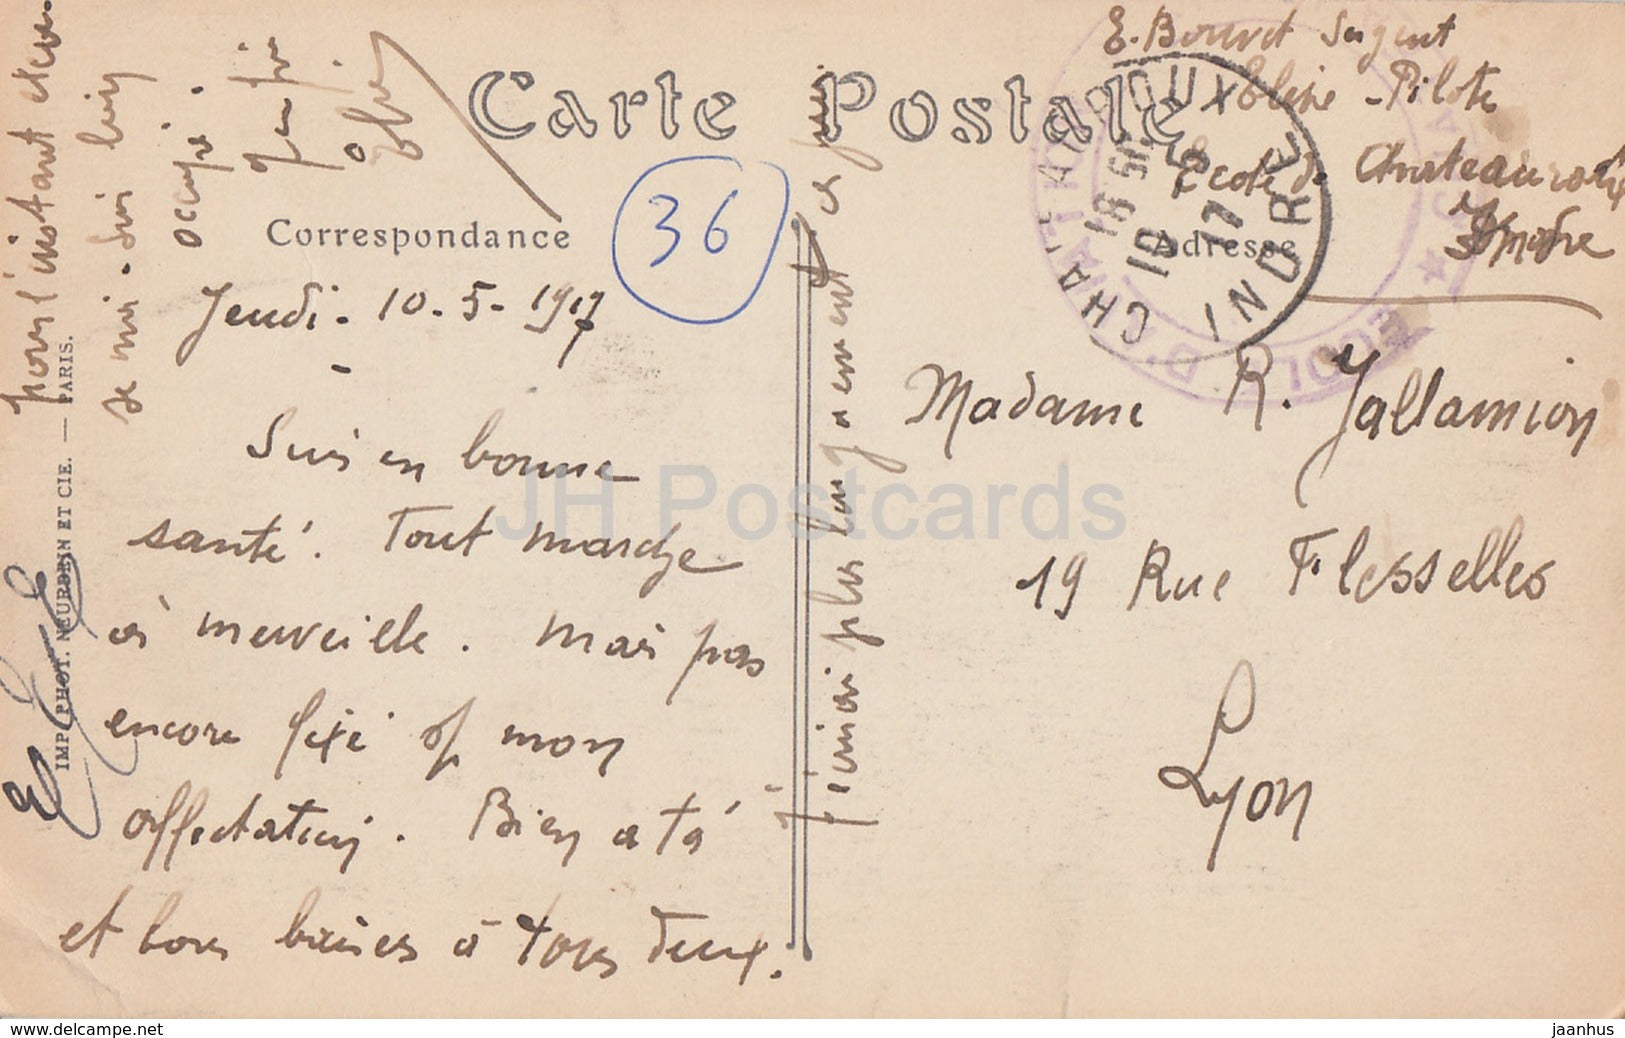 Carte Postale
Correspondance
Adresse
E. Bouvet Sergent
Elève-Pilote
Ecole de Chateauroux
Indre
36
Jeudi - 10-5-1917
Suis en bonne
santé. Tout marche
à merveille. Mais pas
encore fixé sf mon
affectation. Bien à tá
et bons baisers à tous deux.
J'écrirai plus longuement
pour l'instant
je suis bien
occupé.
Madame R. Jallamion
19 Rue Flesselles
Lyon
CHATEAUROUX
18 51
10 5
17
INDRE
IMP. PHOT. NEURDEIN ET CIE. — PARIS.
JH Postcards
www.delcampe.net
jaanhus